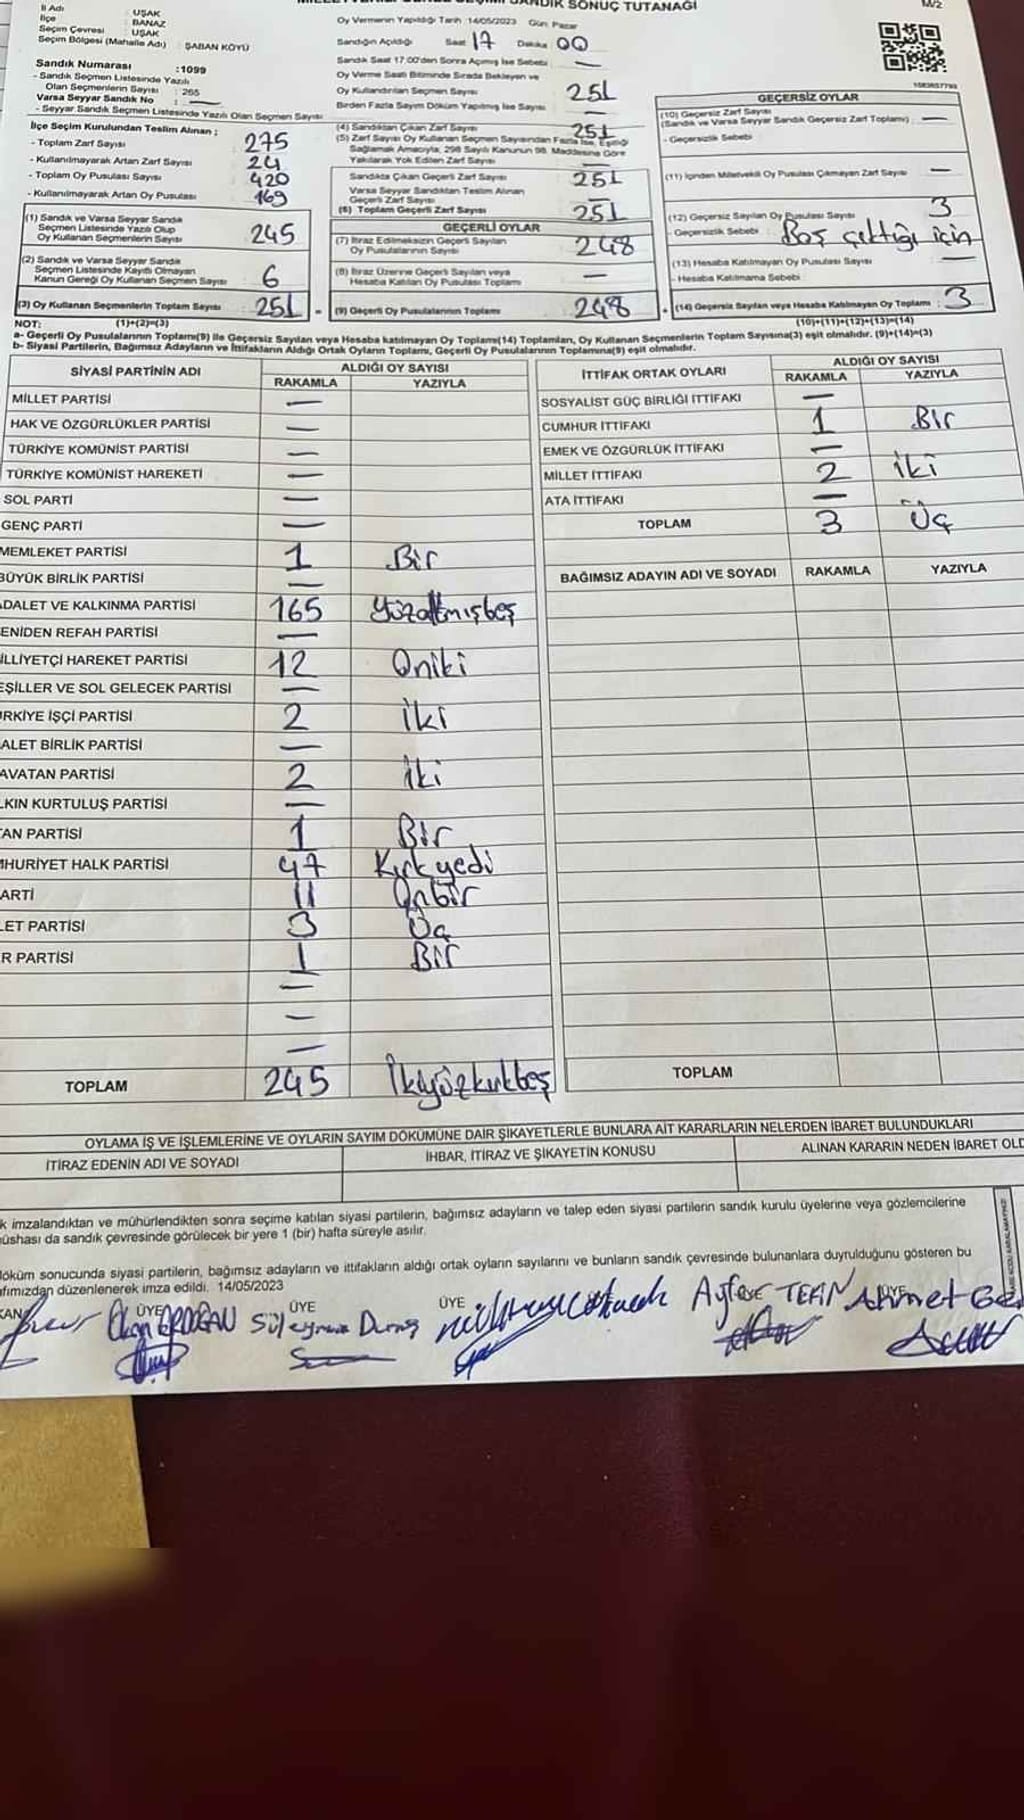 SANDIK SONUÇ TUTANAĞI
M/2
İl Adı : UŞAK
İlçe : BANAZ
Seçim Çevresi : UŞAK
Seçim Bölgesi (Mahalle Adı) : ŞABAN KÖYÜ
Sandık Numarası : 1099
- Sandık Seçmen Listesinde Yazılı
Olan Seçmenlerin Sayısı : 265
Varsa Seyyar Sandık No : —
- Seyyar Sandık Seçmen Listesinde Yazılı Olan Seçmen Sayısı
İlçe Seçim Kurulundan Teslim Alınan ;
- Toplam Zarf Sayısı 275
- Kullanılmayarak Artan Zarf Sayısı 24
- Toplam Oy Pusulası Sayısı 420
- Kullanılmayarak Artan Oy Pusulası 169
(1) Sandık ve Varsa Seyyar Sandık
Seçmen Listesinde Yazılı Olup
Oy Kullanan Seçmenlerin Sayısı 245
(2) Sandık ve Varsa Seyyar Sandık
Seçmen Listesinde Kayıtlı Olmayan
Kanun Gereği Oy Kullanan Seçmen Sayısı 6
(3) Oy Kullanan Seçmenlerin Toplam Sayısı 251
(1)+(2)=(3)
Oy Vermenin Yapıldığı Tarih 14/05/2023 Gün: Pazar
Sandığın Açıldığı Saat 17 Dakika 00
Sandık Saat 17.00'den Sonra Açılmış İse Sebebi —
Oy Verme Saati Bitiminde Sırada Bekleyen ve
Oy Kullandırılan Seçmen Sayısı 251
Birden Fazla Sayım Döküm Yapılmış İse Sayısı —
(4) Sandıktan Çıkan Zarf Sayısı 251
(5) Zarf Sayısı Oy Kullanan Seçmen Sayısından Fazla İse, Eşitliği
Sağlamak Amacıyla, 298 Sayılı Kanunun 98. Maddesine Göre
Yakılarak Yok Edilen Zarf Sayısı —
Sandıkta Çıkan Geçerli Zarf Sayısı 251
Varsa Seyyar Sandıktan Teslim Alınan
Geçerli Zarf Sayısı —
(6) Toplam Geçerli Zarf Sayısı 251
GEÇERLİ OYLAR
(7) İtiraz Edilmeksizin Geçerli Sayılan
Oy Pusulalarının Sayısı 248
(8) İtiraz Üzerine Geçerli Sayılan veya
Hesaba Katılan Oy Pusulası Toplamı —
(9) Geçerli Oy Pusulalarının Toplamı 248
GEÇERSİZ OYLAR
(10) Geçersiz Zarf Sayısı
(Sandık ve Varsa Seyyar Sandık Geçersiz Zarf Toplamı) —
- Geçersizlik Sebebi
(11) İçinden Milletvekili Oy Pusulası Çıkmayan Zarf Sayısı —
(12) Geçersiz Sayılan Oy Pusulası Sayısı 3
- Geçersizlik Sebebi Boş çıktığı için
(13) Hesaba Katılmayan Oy Pusulası Sayısı —
- Hesaba Katılmama Sebebi
(14) Geçersiz Sayılan veya Hesaba Katılmayan Oy Toplamı 3
(10)+(11)+(12)+(13)=(14)
NOT:
a- Geçerli Oy Pusulalarının Toplamı(9) ile Geçersiz Sayılan veya Hesaba katılmayan Oy Toplamı(14) Toplamları, Oy Kullanan Seçmenlerin Toplam Sayısına(3) eşit olmalıdır. (9)+(14)=(3)
b- Siyasi Partilerin, Bağımsız Adayların ve İttifakların Aldığı Ortak Oyların Toplamı, Geçerli Oy Pusulalarının Toplamına(9) eşit olmalıdır.
SİYASİ PARTİNİN ADI ALDIĞI OY SAYISI
RAKAMLA YAZIYLA
MİLLET PARTİSİ —
HAK VE ÖZGÜRLÜKLER PARTİSİ —
TÜRKİYE KOMÜNİST PARTİSİ —
TÜRKİYE KOMÜNİST HAREKETİ —
SOL PARTİ —
GENÇ PARTİ —
MEMLEKET PARTİSİ 1 Bir
BÜYÜK BİRLİK PARTİSİ —
ADALET VE KALKINMA PARTİSİ 165 Yüzaltmışbeş
ENİDEN REFAH PARTİSİ —
İLLİYETÇİ HAREKET PARTİSİ 12 Oniki
EŞİLLER VE SOL GELECEK PARTİSİ —
RKİYE İŞÇİ PARTİSİ 2 İki
ALET BİRLİK PARTİSİ —
AVATAN PARTİSİ 2 İki
LKIN KURTULUŞ PARTİSİ —
TAN PARTİSİ 1 Bir
MHURİYET HALK PARTİSİ 47 Kırkyedi
ARTİ 11 Onbir
LET PARTİSİ 3 Üç
R PARTİSİ 1 Bir
—
—
—
TOPLAM 245 İkiyüzkırkbeş
İTTİFAK ORTAK OYLARI ALDIĞI OY SAYISI
RAKAMLA YAZIYLA
SOSYALİST GÜÇ BİRLİĞİ İTTİFAKI —
CUMHUR İTTİFAKI 1 Bir
EMEK VE ÖZGÜRLÜK İTTİFAKI —
MİLLET İTTİFAKI 2 İki
ATA İTTİFAKI —
TOPLAM 3 Üç
BAĞIMSIZ ADAYIN ADI VE SOYADI RAKAMLA YAZIYLA
TOPLAM
OYLAMA İŞ VE İŞLEMLERİNE VE OYLARIN SAYIM DÖKÜMÜNE DAİR ŞİKAYETLERLE BUNLARA AİT KARARLARIN NELERDEN İBARET BULUNDUKLARI
İTİRAZ EDENİN ADI VE SOYADI İHBAR, İTİRAZ VE ŞİKAYETİN KONUSU ALINAN KARARIN NEDEN İBARET OLD
k imzalandıktan ve mühürlendikten sonra seçime katılan siyasi partilerin, bağımsız adayların ve talep eden siyasi partilerin sandık kurulu üyelerine veya gözlemcilerine
üshası da sandık çevresinde görülecek bir yere 1 (bir) hafta süreyle asılır.
döküm sonucunda siyasi partilerin, bağımsız adayların ve ittifakların aldığı ortak oyların sayılarını ve bunların sandık çevresinde bulunanlara duyurulduğunu gösteren bu
fımızdan düzenlenerek imza edildi. 14/05/2023
KAN ÜYE ÜYE ÜYE
ERDOĞAN Süleyman Durmuş Ayfer TEKİN Ahmet